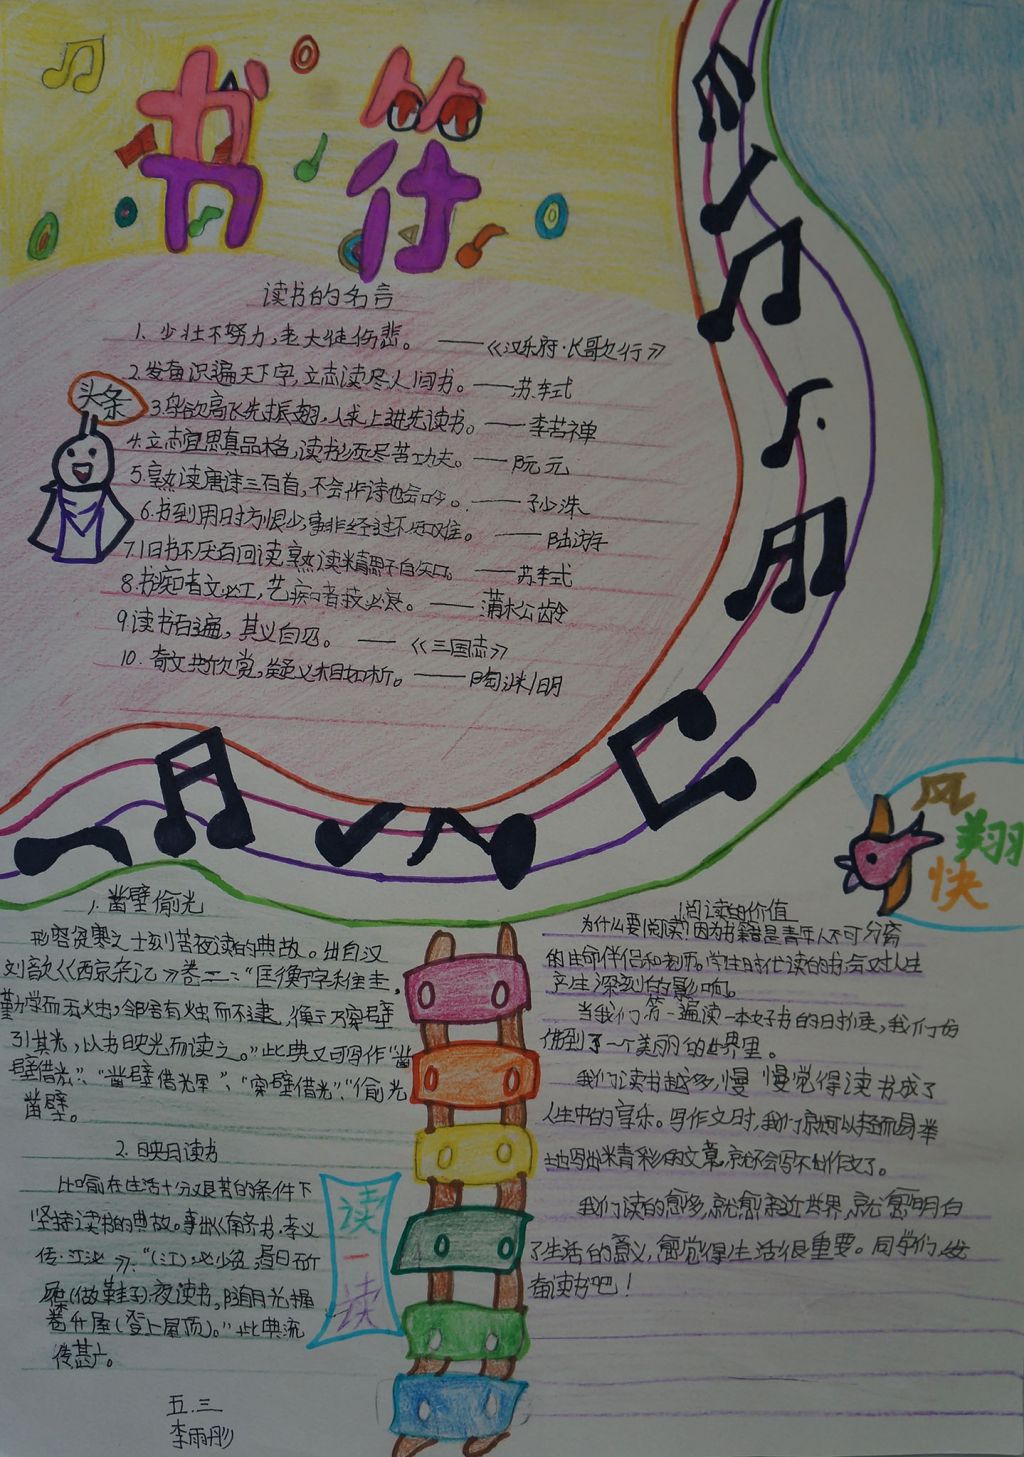 书符
读书的名言
头条
1. 少壮不努力,老大徒伤悲。——《汉乐府·长歌行》
2.发奋识遍天下字,立志读尽人间书。——苏轼
3.鸟欲高飞先振翅,人求上进先读书。——李苦禅
4.立志宜思真品格,读书须尽苦功夫。——阮元
5.熟读唐诗三百首,不会作诗也会吟。——孙洙
6.书到用时方恨少,事非经过不知难。——陆游
7.旧书不厌百回读,熟读精思子自知。——苏轼
8.书痴者文必工,艺痴者技必良。——蒲松龄
9.读书百遍,其义自见。——《三国志》
10.奇文共欣赏,疑义相如析。——陶渊明
风翔
快
1.凿壁偷光
形容贫寒之士刻苦夜读的典故。出自汉
刘歆《西京杂记》卷二:“匡衡字稚圭,
勤学而无火虫,邻舍有烛而不逮,衡乃穿壁
引其光,以书映光而读之。”此典又可写作“凿
壁借光”、“凿壁借光”、“穿壁借光”、“偷光
凿壁。
2.映月读书
比喻在生活十分艰苦的条件下
坚持读书的典故。事出《南齐书·孝义
传·江泌》:“(江)泌少贫,昼日斫
屧(做鞋子)夜读书,随月光握
卷升屋(登上屋顶)。”此典流
传甚广。
读一读
五.三
李雨彤
阅读的价值
为什么要阅读?因为书籍是青年人不可分离
的生命伴侣和老师。学生时代读的书会对人生
产生深刻的影响。
当我们第一遍读一本好书的时候,我们仿
佛到了一个美丽的世界里。
我们读书越多,慢慢觉得读书成了
人生中的享乐。写作文时,我们就可以轻而易举
地写出精彩的文章,就不会写不出作文了。
我们读的愈多,就愈亲近世界,就愈明白
了生活的意义,愈觉得生活很重要。同学们,发
奋读书吧!